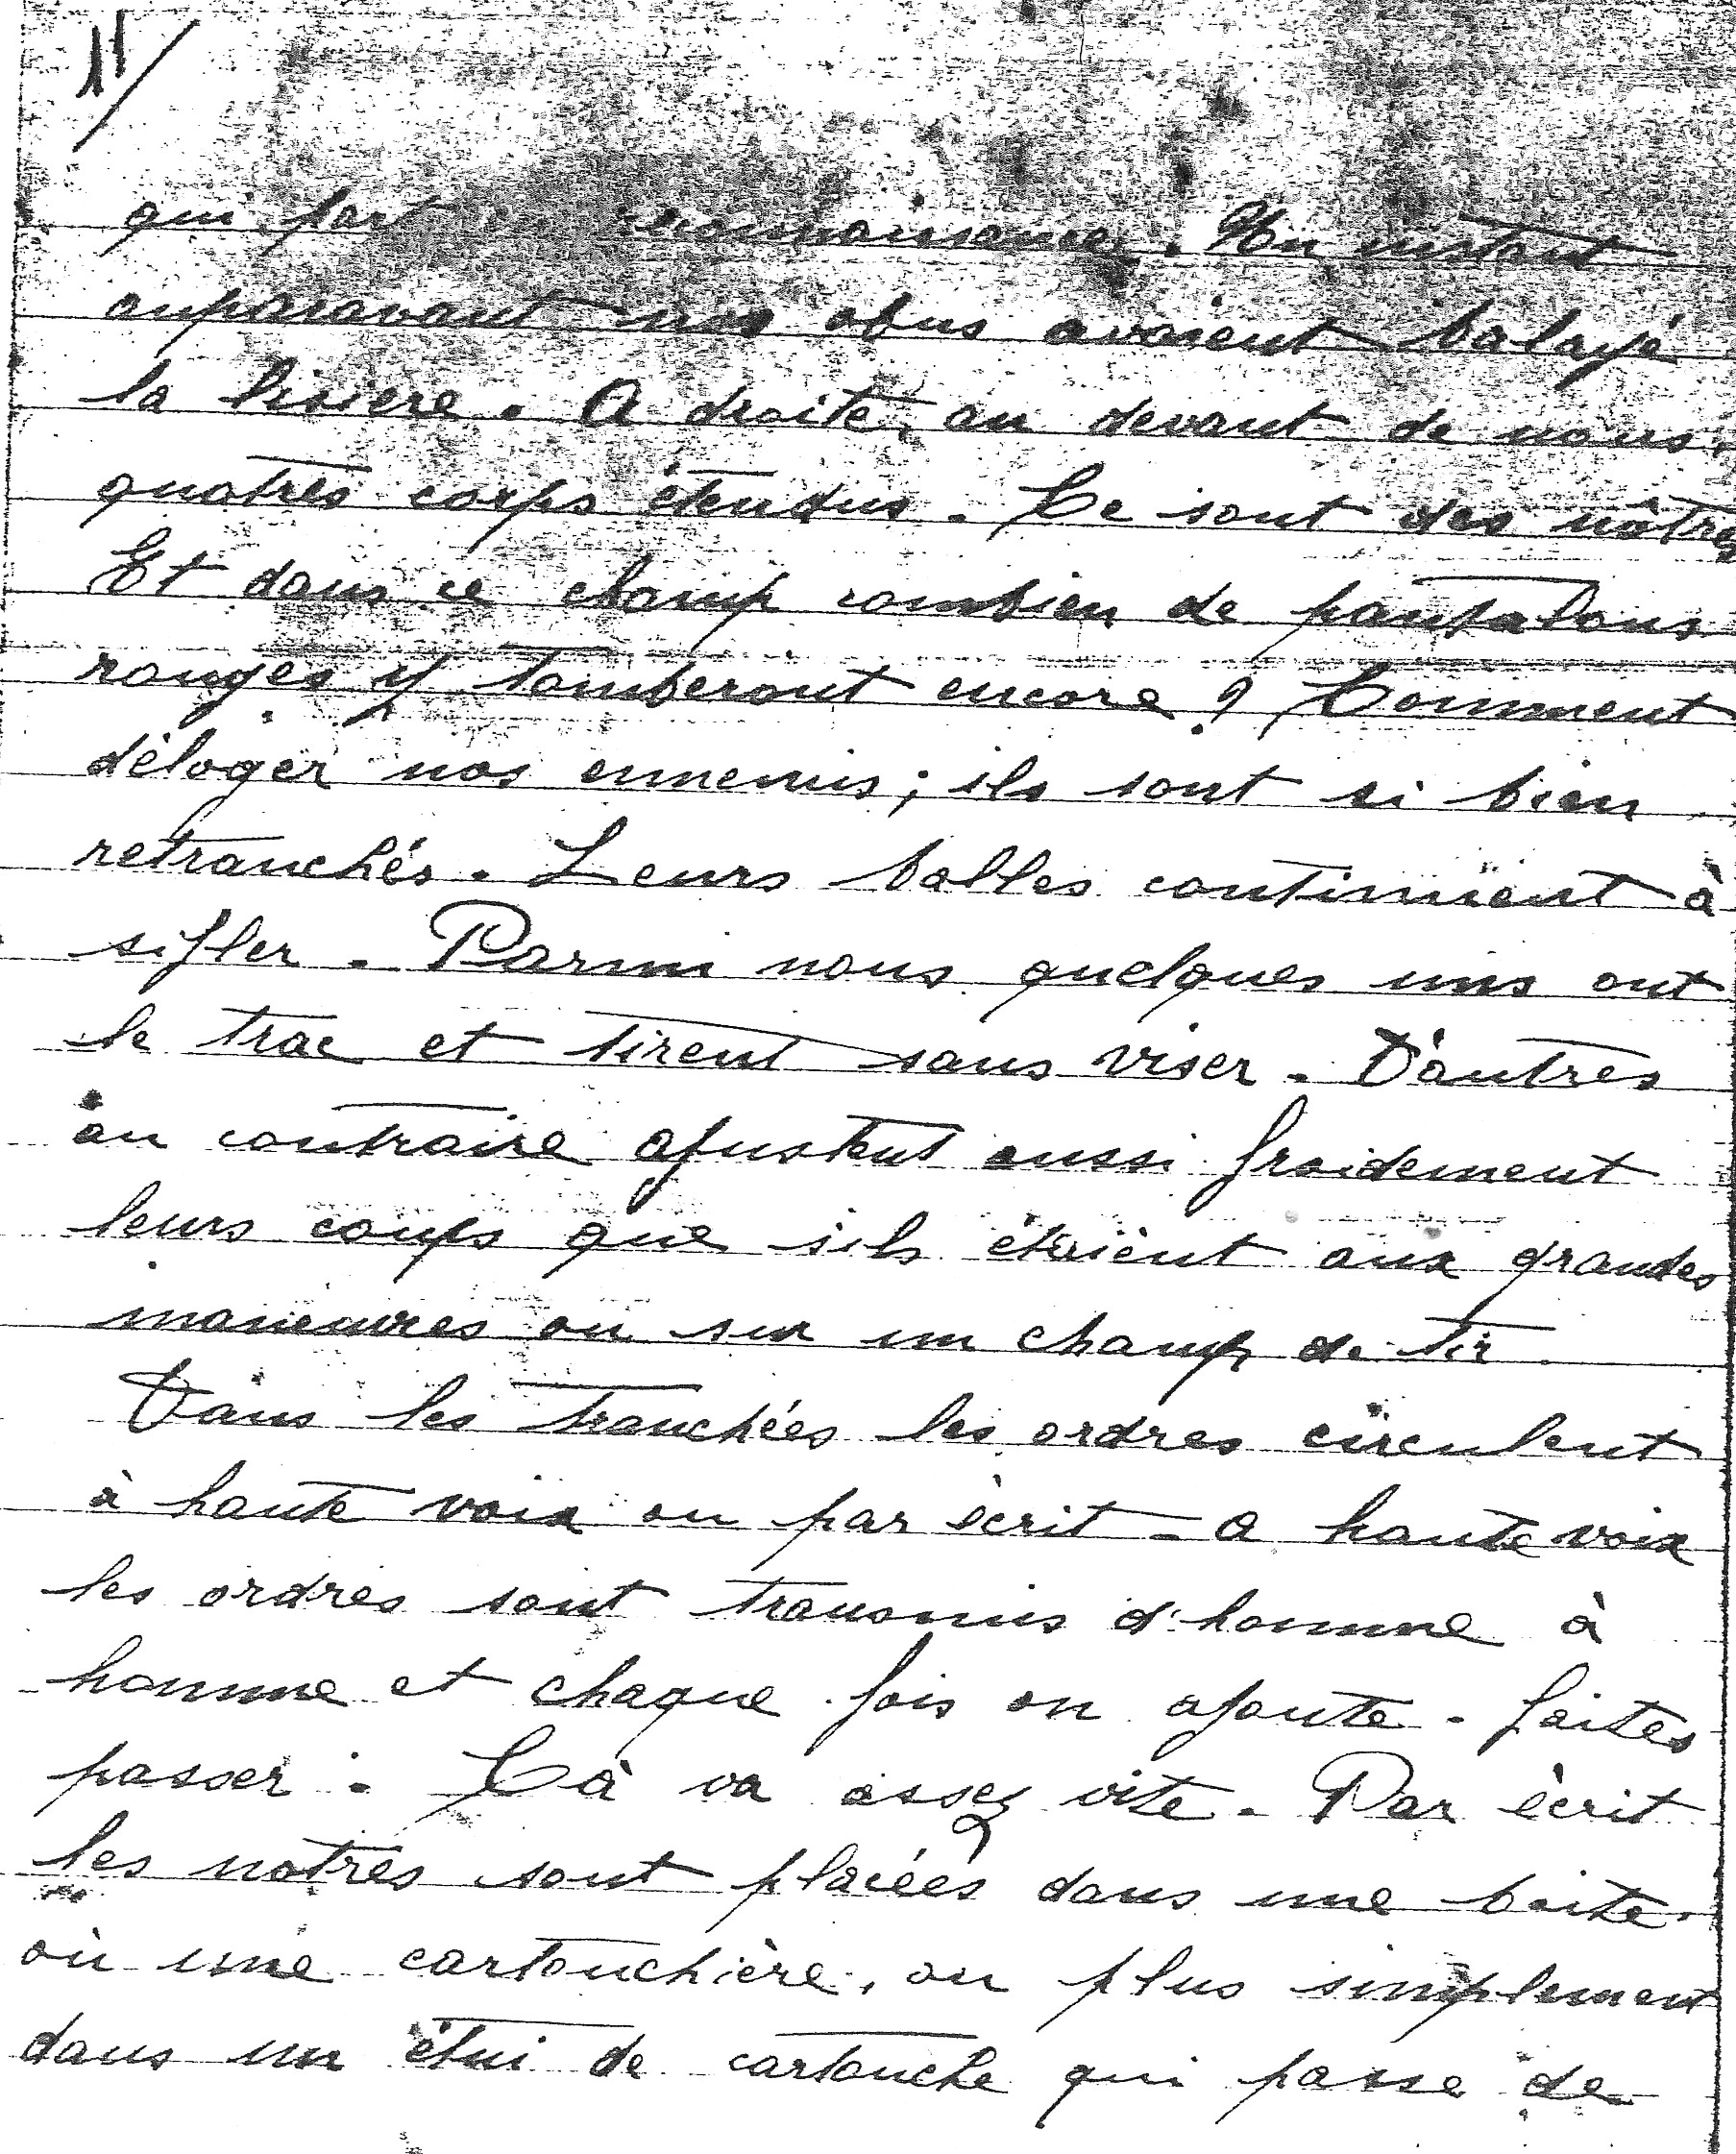 11/
qui part reconnaissance. Un instant
auparavant nos obus avaient balayé
la lisière. A droite, au devant de nous,
quatres corps étendus. Ce sont des nôtres
Et dans ce champ combien de pantalons
rouges y tomberont encore ? Comment
déloger nos ennemis ; ils sont si bien
retranchés. Leurs balles continuent à
sifler. Parmi nous quelques uns ont
le trac et tirent sans viser. D'autres
au contraire ajustent aussi froidement
leurs coups que s'ils étaient aux grandes
manœuvres ou sur un champ de tir.
Dans les tranchées les ordres circulent
à haute voix ou par écrit - a haute voix
les ordres sont transmis d'homme à
homme et chaque fois on ajoute. faites
passer. Cà va assez vite. Par écrit
les notres sont placées dans une boite.
ou une cartouchière, ou plus simplement
dans un étui de cartouche qui passe de